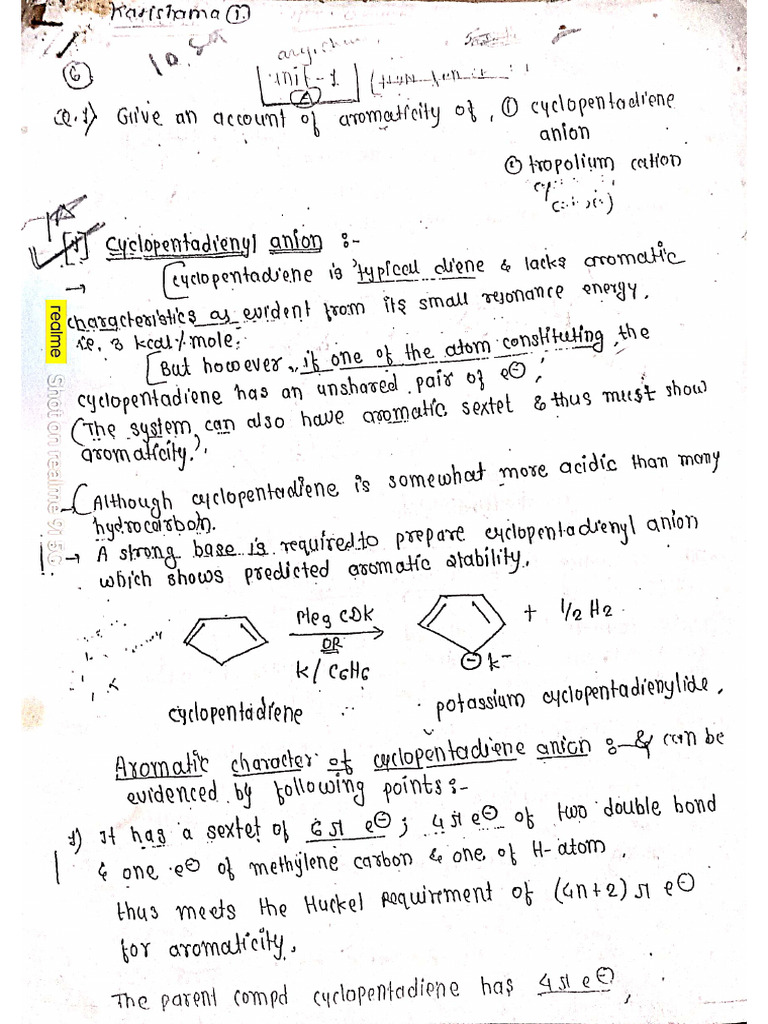 Karishama ①
⑥
Unit-1
A
Q.1) Give an account of aromaticity of, ① cyclopentadiene
anion
② tropolium cation
[1] Cyclopentadienyl anion :-
→ [cyclopentadiene is 'typical diene & lacks aromatic
characteristics as evident from its small resonance energy.
i.e. 3 kcal/mole.
[But however, if one of the atom constituting the
cyclopentadiene has an unshared pair of e⊖,
(The system can also have aromatic sextet & thus must show
aromaticity.).
→ (Although cyclopentadiene is somewhat more acidic than many
hydrocarbon.
→ A strong base is required to prepare cyclopentadienyl anion
which shows predicted aromatic stability.
Me3 COK
OR
K/C6H6
+ 1/2 H2.
⊖ K-
cyclopentadiene
potassium cyclopentadienylide.
Aromatic character of cyclopentadiene anion :- & can be
evidenced by following points :-
1) It has a sextet of 6 π e⊖; 4 π e⊖ of two double bond
& one e⊖ of methylene carbon & one of H-atom.
thus meets the Huckel Requirement of (4n+2) π e⊖
for aromaticity.
The parent compd cyclopentadiene has 4 π e⊖,
realme Shot on realme 9i 5G